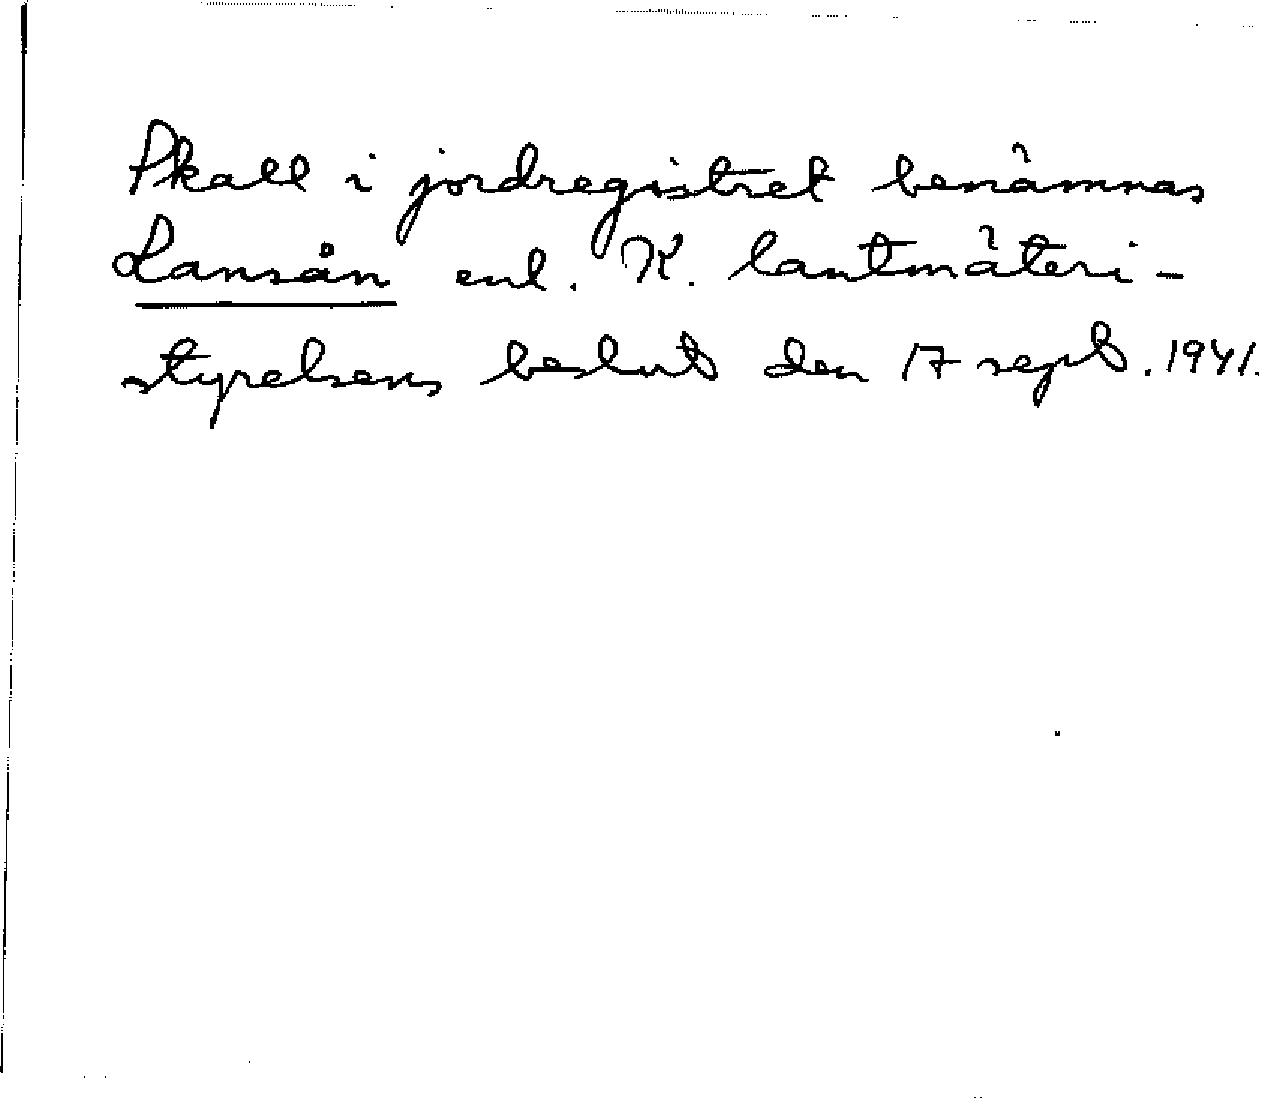 Skall i jordregistret benämnas
Lansån enl. K. lantmäteri-
styrelsens beslut den 17 sept. 1941.